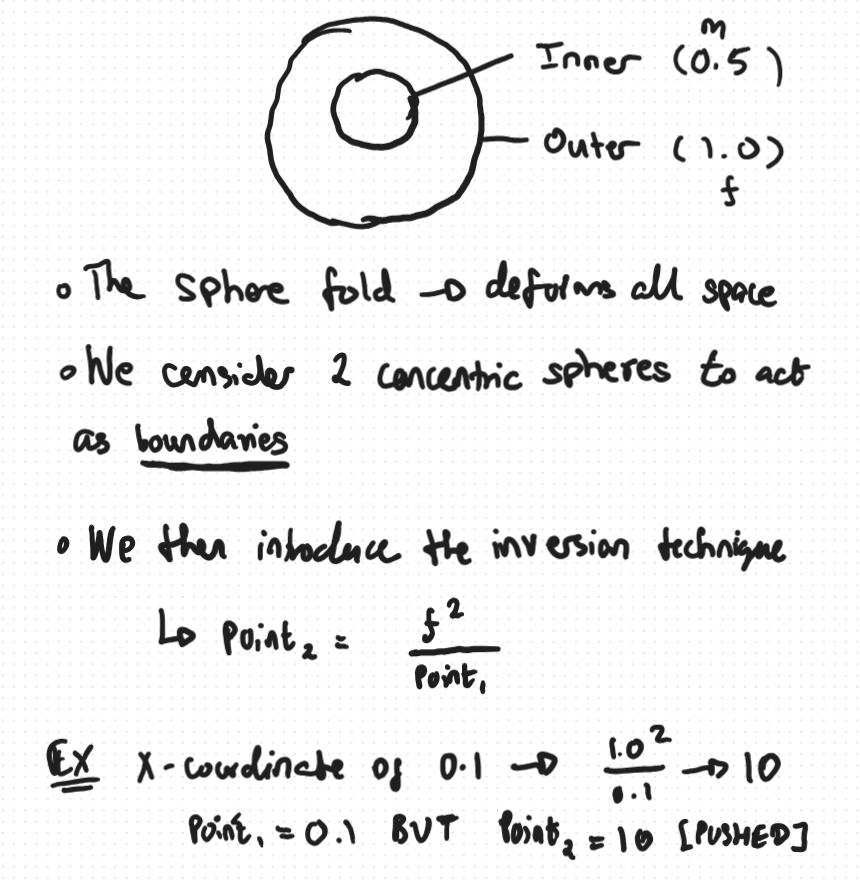 m
Inner (0.5)
Outer (1.0)
f
• The sphere fold → deforms all space
• We consider 2 concentric spheres to act
as boundaries
• We then introduce the inversion technique
↳ Point₂ = f² / Point₁
EX X-coordinate of 0.1 → 1.0² / 0.1 → 10
Point₁ = 0.1 BUT Point₂ = 10 [PUSHED]